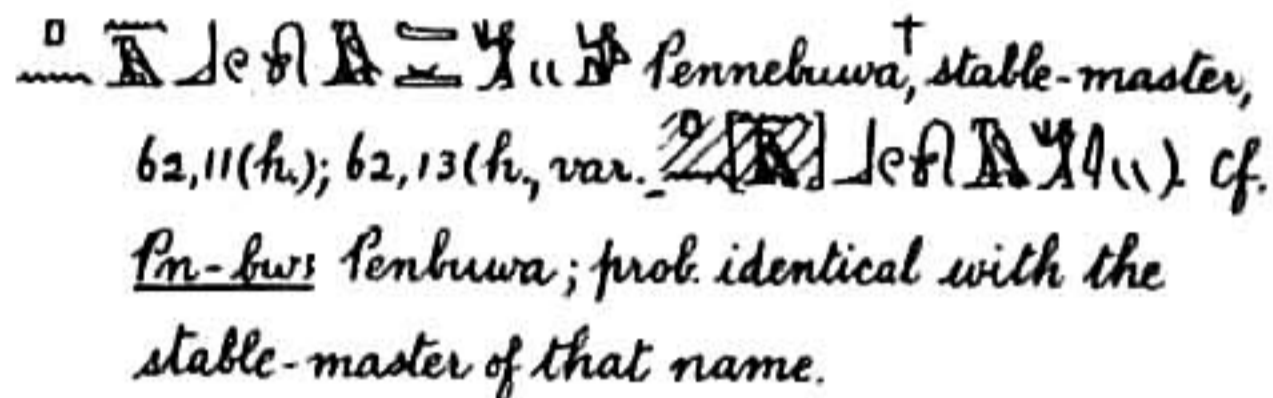 Pennebuwa,† stable-master,
62,11(h.); 62,13(h., var. ). Cf.
Pn-bwꜣ Penbuwa; prob. identical with the
stable-master of that name.